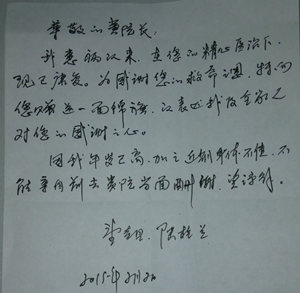 尊敬的黄院长:
我患病以来,在您的精心医治下,
现已康复。为感谢您的救命之恩,特向
您赠送一面锦旗,以表达我及全家人
对您的感谢之心。
因我年岁已高,加之近期身体不佳,不
能亲自前去贵院当面酬谢,望谅解。
2015年2月2日